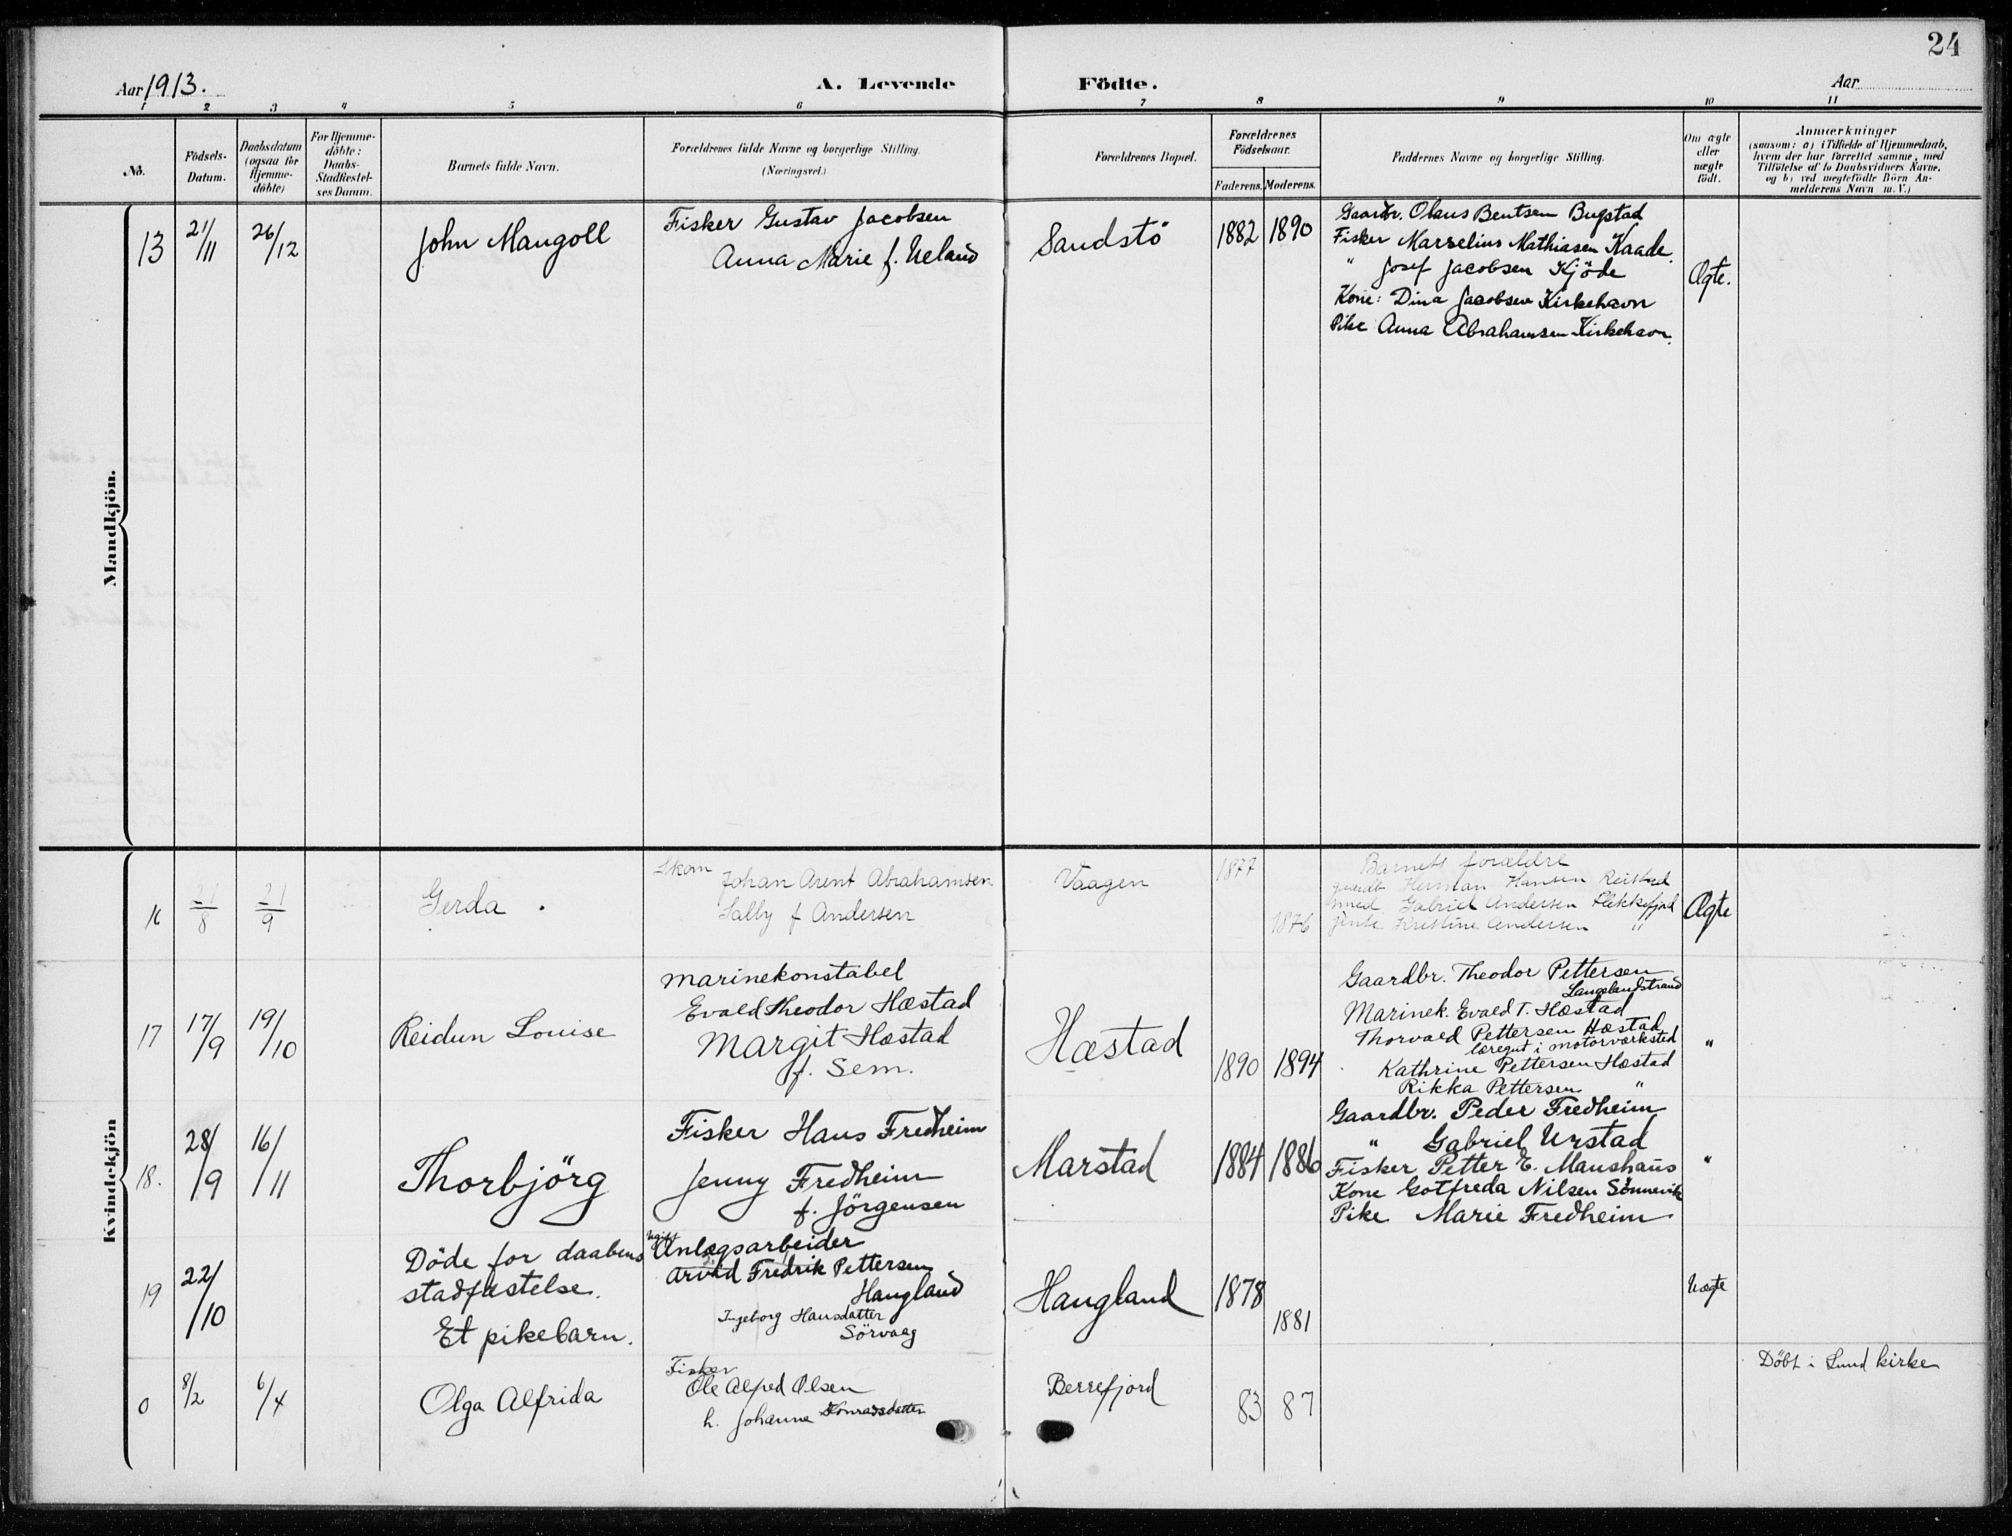 24
Aar 1913.
A. Levende Födte.
Aar
1 2 3 4 5 6 7 8 9 10 11
No.
Födsels-
Datum.
Daabsdatum
(ogsaa for
Hjemme-
döbte)
For Hjemme-
döbte:
Daabs-
Stadfæstel-
ses Datum.
Barnets fulde Navn.
Forældrenes fulde Navne og borgerlige Stilling.
(Næringsvei.)
Forældrenes Bopæl.
Forældrenes
Födselsaar.
Faderens. Moderens.
Faddernes Navne og borgerlige Stilling.
Om ægte
eller
uægte
födt.
Anmærkninger
(saasom: a) i Tilfælde af Hjemmedaab,
hvem der har forrettet samme, med
Tilföielse af to Daabsvidners Navne.
og b) ved uægtefödte Börn An-
melderens Navn m. V.)
Mandkjön.
13
21/11
26/12
John Mangoll
Fisker Gustav Jacobsen
Anna Marie f. Ueland
Sandstö
1882 1890
Gaardbr. Olaus Bentsen Bugstad
Fisker Marselius Mathiasen Kaade
" Josef Jacobsen Kjöde
Kone: Dina Jacobsen Kirkehavn
Pike Anna Abrahamsen Kirkehavn.
Ægte.
Kvindekjön
16
21/8
21/9
Gerda
Skom
Johan Arent Abrahamsen
Sally f Andersen
Vaagen
1877
1876
Barnets forældre
gaardb Herman Hansen Reistad
smed Gabriel Andersen Flekkefjord
jente Kristine Andersen "
Ægte
17
17/9
19/10
Reidun Louise
Marinekonstabel
Evald Theodor Hæstad
Margit Hæstad
f. Sem.
Hæstad
1890 1894
Gaardbr. Theodor Pettersen
Langelandstrand
Marinek. Evald T. Hæstad
Thorvald Pettersen Hæstad
læregut i motorværksted
Kathrine Pettersen Hæstad
Rikka Pettersen "
"
18.
28/9
16/11
Thorbjörg
Fisker Hans Fredheim
Jenny Fredheim
f. Jörgensen
Marstad
1884 1886
Gaardbr. Peder Fredheim
" Gabriel Urstad
Fisker Petter E. Maushaus
Kone Gotfreda Nilsen Sönnevik
Pike Marie Fredheim
"
19
22/10
Döde for daabens
stadfæstelse.
Et pikebarn.
Ugift
Anlægsarbeider
Arvid Fredrik Pettersen
Haugland
Ingeborg Hansdatter
Sörvaag
Haugland
1878
1881
Uægte
0
8/2
6/4
Olga Alfrida
Fisker
Ole Alfred Olsen
h. Johanne Konradsdatter
Berrefjord
83 87
Döbt i Lund kirke